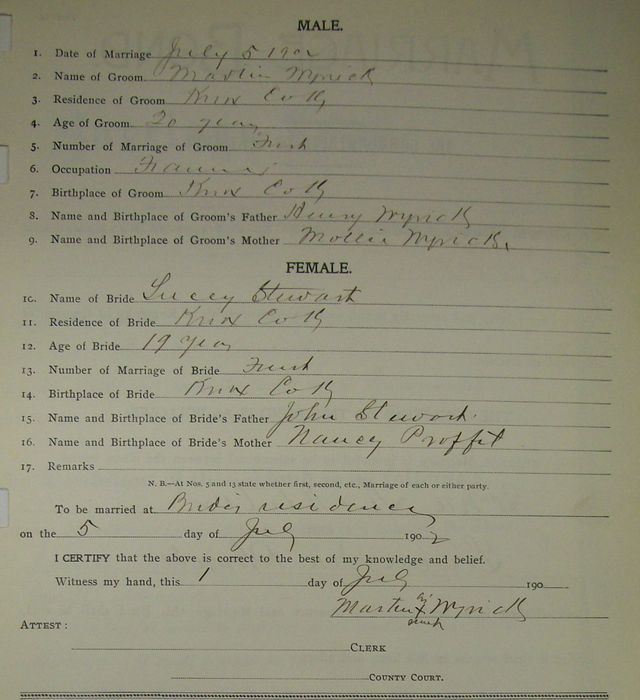 MALE.
1. Date of Marriage July 5 1902
2. Name of Groom Martin Wyrick
3. Residence of Groom Knox Co Ky
4. Age of Groom 20 years
5. Number of Marriage of Groom First
6. Occupation Farmer
7. Birthplace of Groom Knox Co Ky
8. Name and Birthplace of Groom's Father Henry Wyrick
9. Name and Birthplace of Groom's Mother Mollie Wyrick
FEMALE.
10. Name of Bride Lucey Stewart
11. Residence of Bride Knox Co Ky
12. Age of Bride 19 year
13. Number of Marriage of Bride First
14. Birthplace of Bride Knox Co Ky
15. Name and Birthplace of Bride's Father John Stewart
16. Name and Birthplace of Bride's Mother Nancy Proffit
17. Remarks
N. B.—At Nos. 5 and 13 state whether first, second, etc., Marriage of each or either party.
To be married at Brides residence
on the 5 day of July 1902
I CERTIFY that the above is correct to the best of my knowledge and belief.
Witness my hand, this 1 day of July 190
his
Martin X Wyrick
mark
ATTEST:
CLERK
COUNTY COURT.